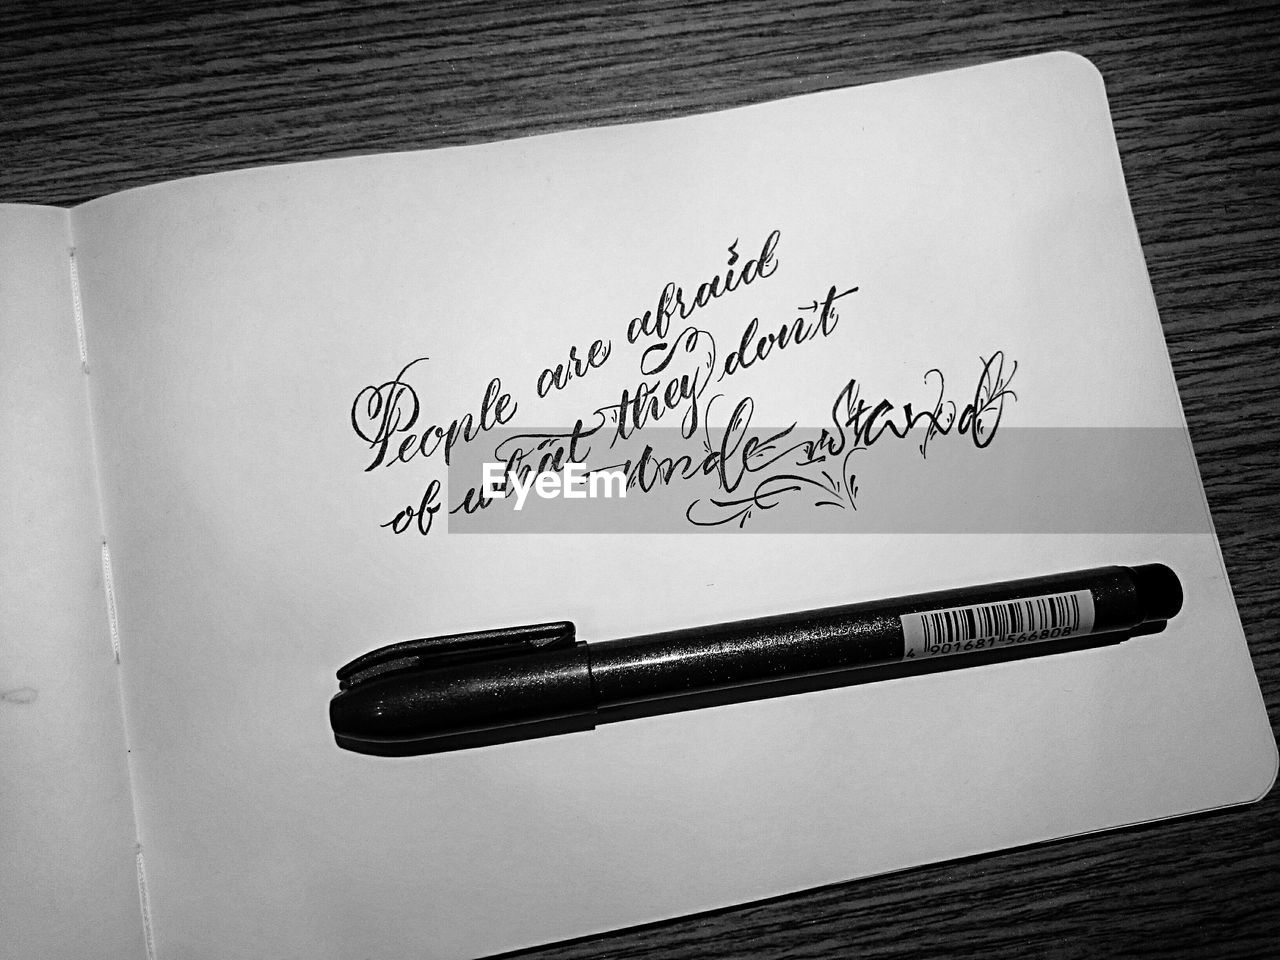 People are afraid
of what they don't
understand
EyeEm
4 901681 566808